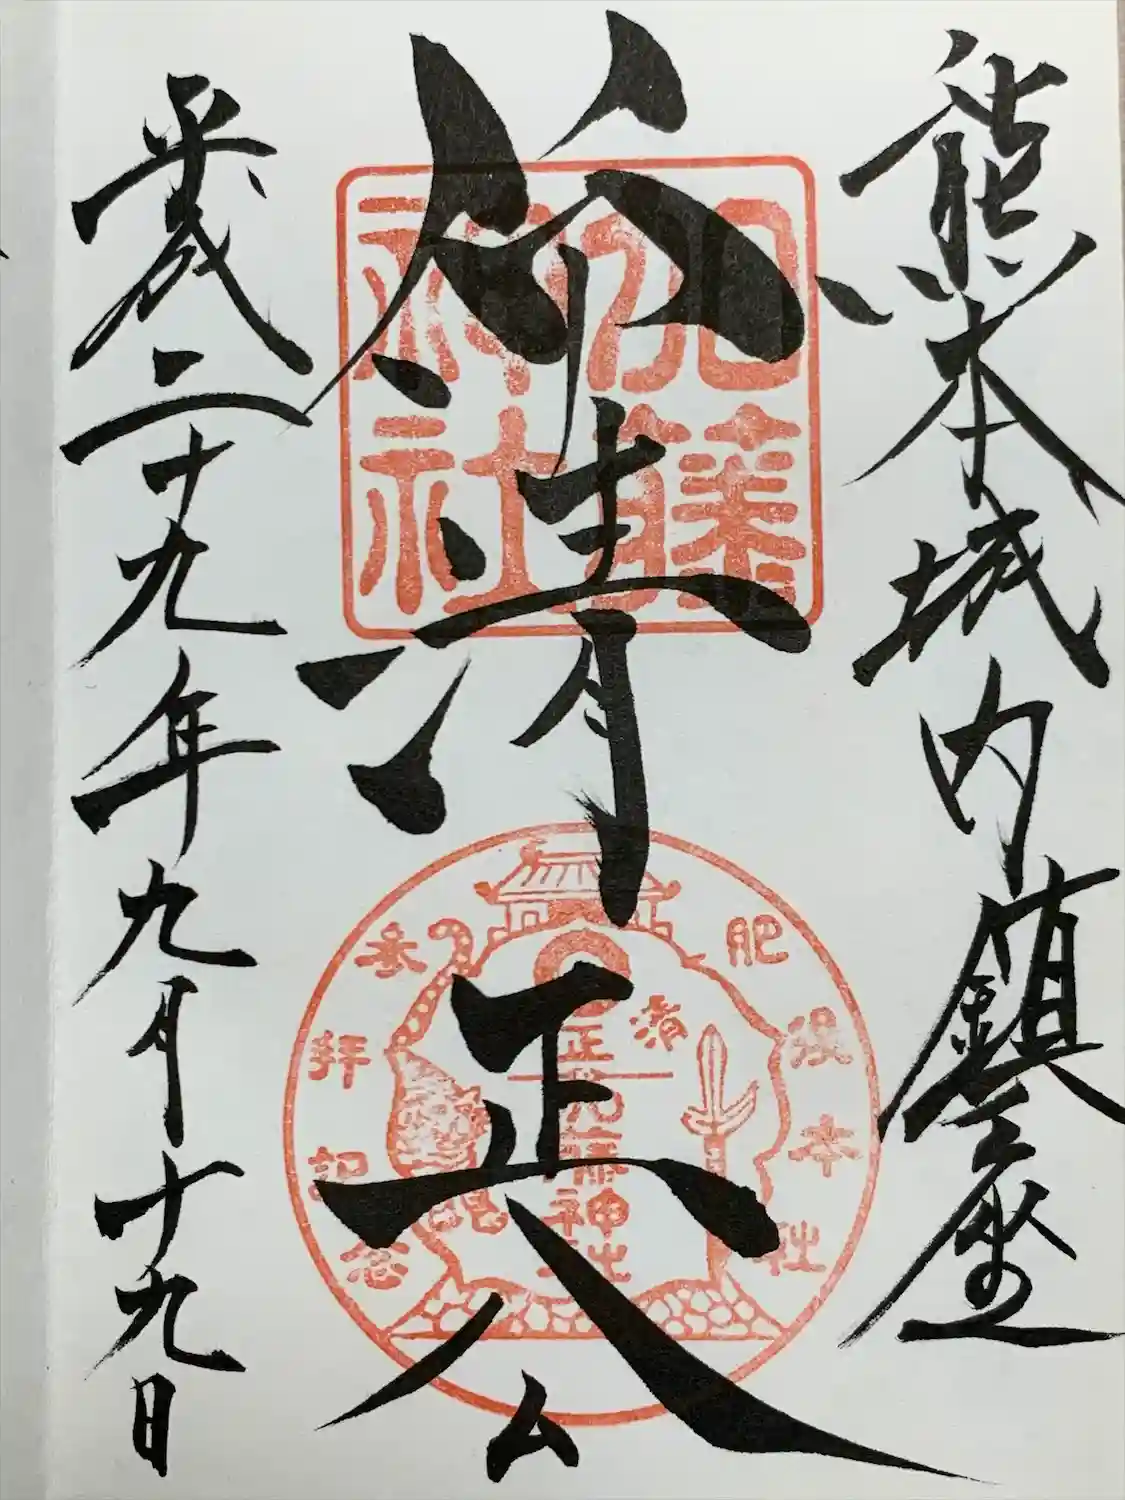 熊本城内鎮座
仰清正公
平成二十九年九月十九日
加藤
神社
肥後本社
参拝記念
加藤神社